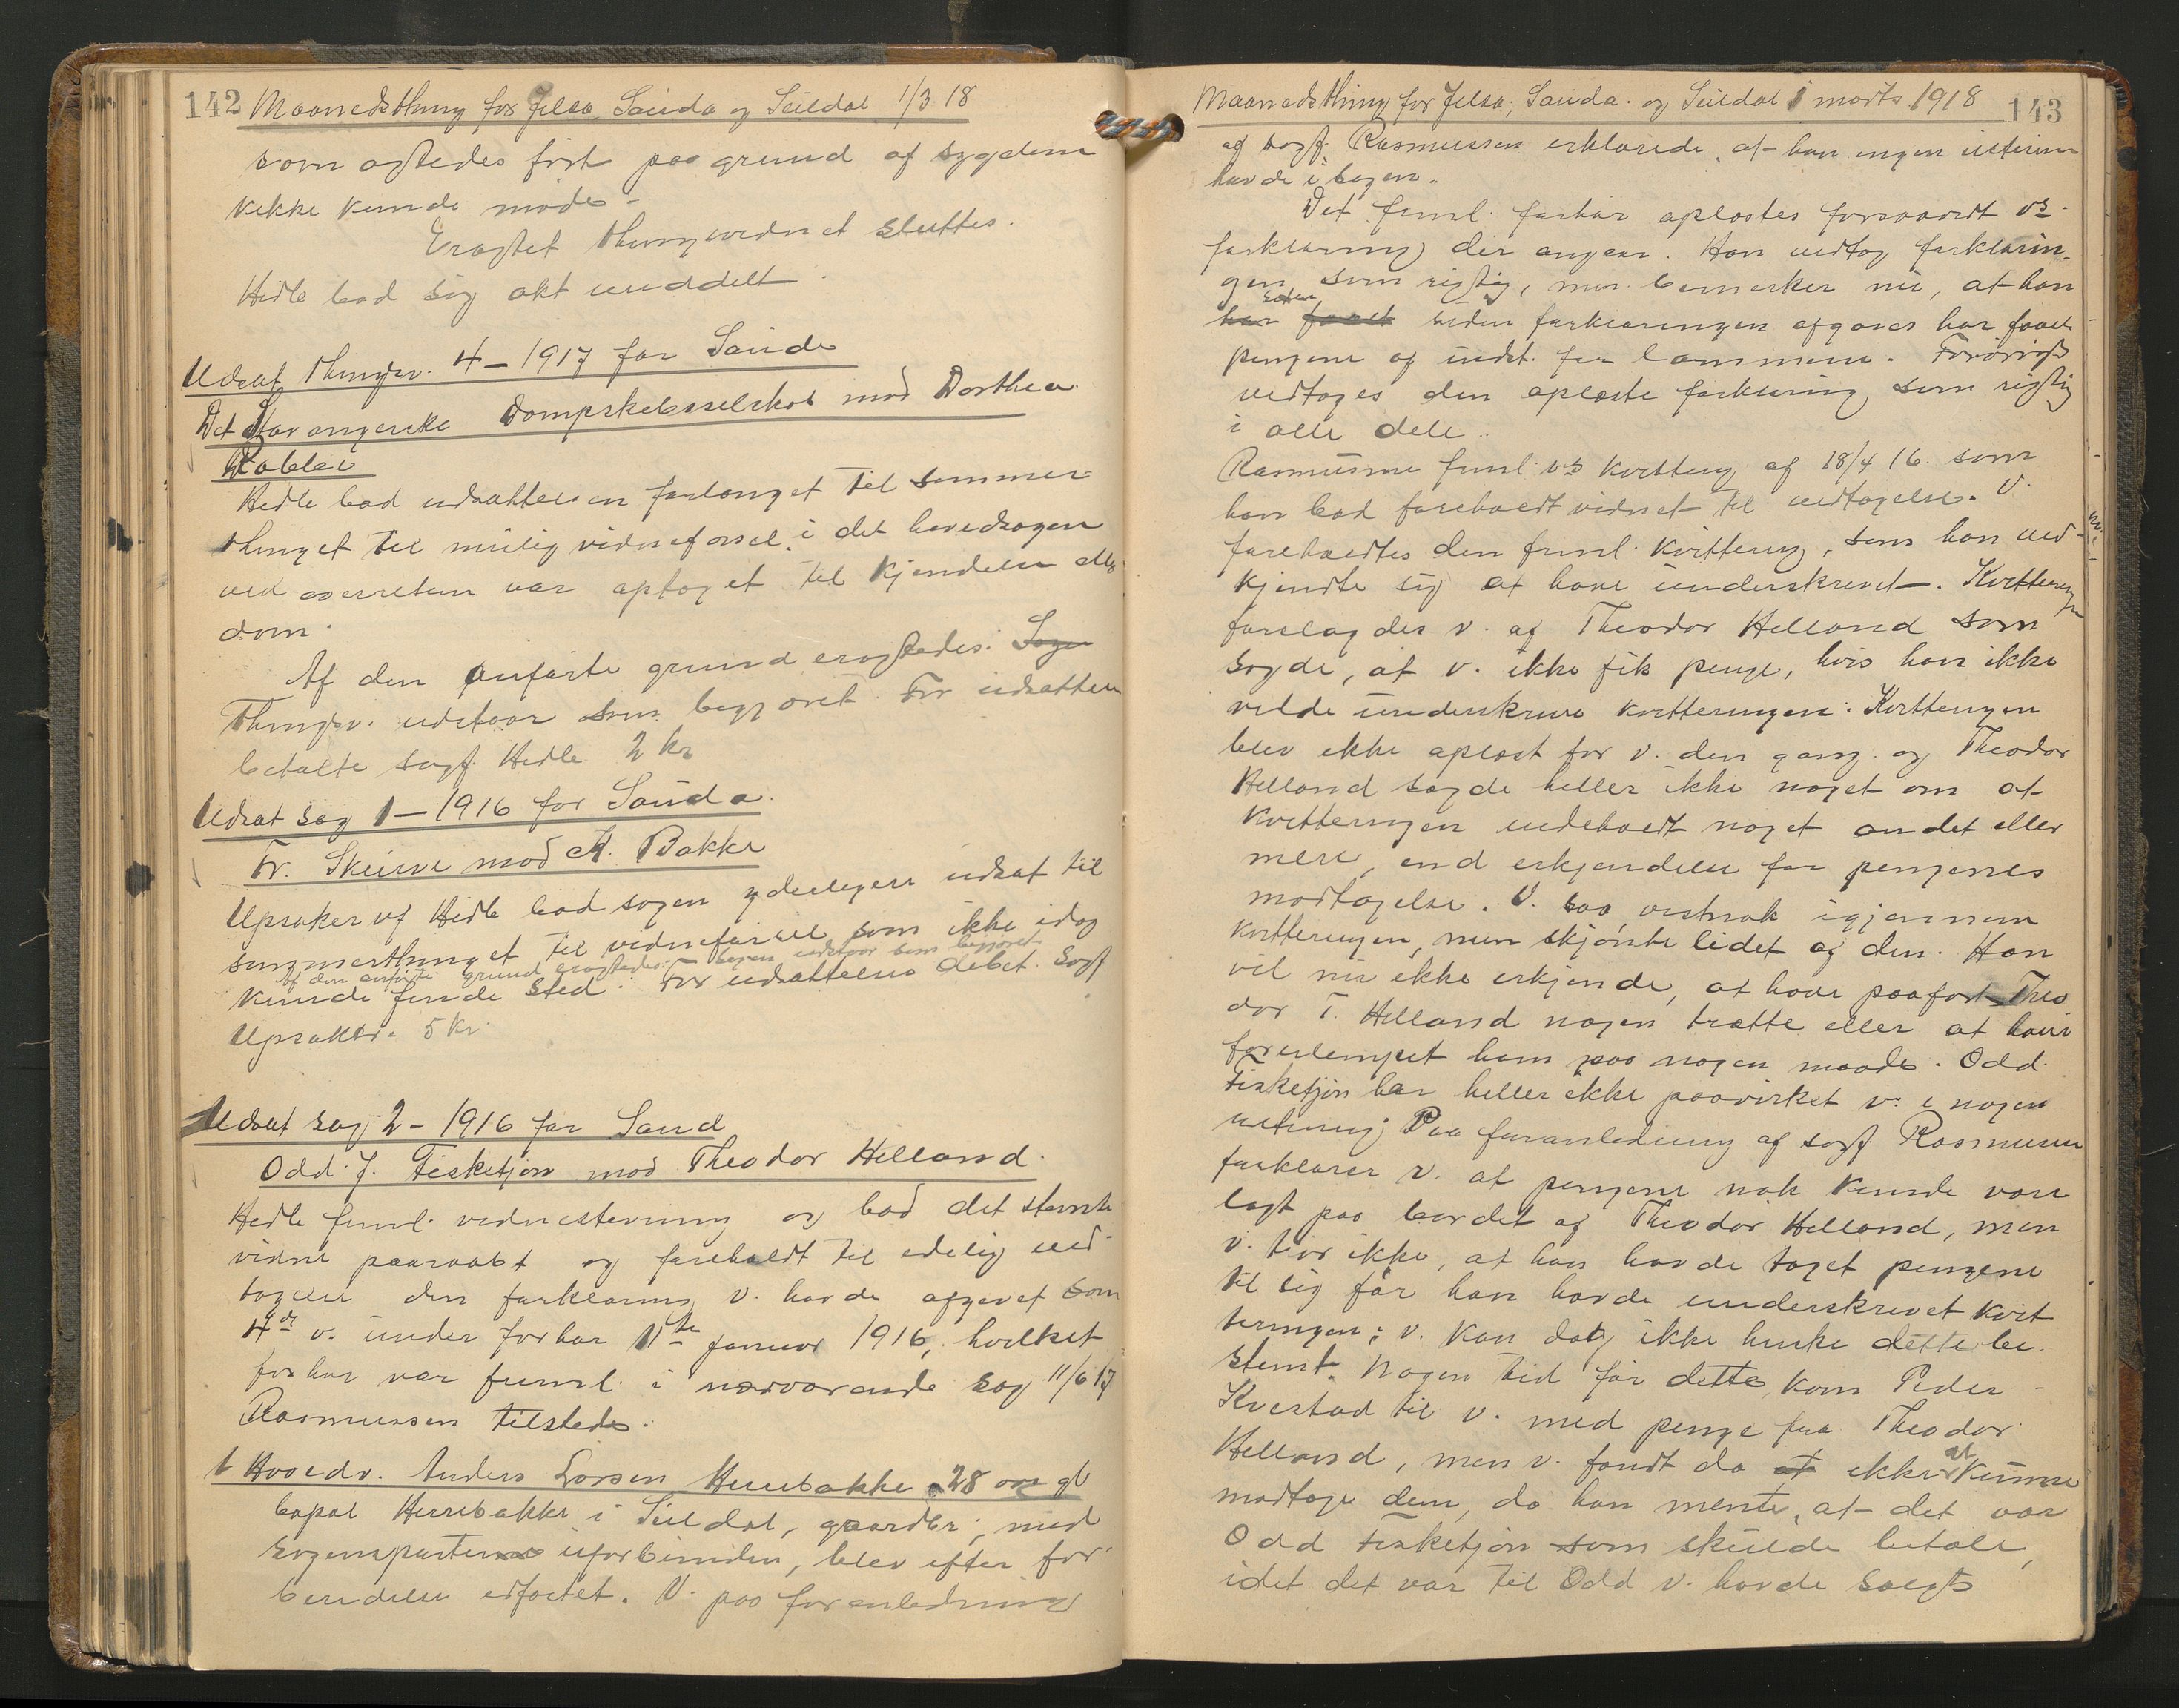 142 Maanedsthing for Jelsa Sauda og Suldal 1/3 18
som agtedes frist paa grund af sygdom
ikke kunde møde.
Eragtet Thingvidnet sluttes.
Hidle bad sig akt meddelt.
Udsat Thingsv. 4 – 1917 for Sauda
Det Stavangerske Dampskibsselskab mod Dorthea
Rabbe
Hidle bad udsættelsen forlænget til sommer-
thinget til mulig vidneførsel, i det hovedsagen
ved overretten var optaget til kjendelse eller
dom.
Af den anførte grund eragtedes: Sagen
Thingsv. udstaar som begjæret. For udsættelsen
betalte sagf. Hidle 2 kr
Udsat sag 1 – 1916 for Sauda.
Fr. Skeirve mod A. Bakke
Opsøker vf Hidle bad sagen yderligere udsat til
sommerthinget til vidneførsel som ikke idag
Af den anførte grund eragtedes: Sagen udstaar som begjæret
kunde finde sted. For udsættelsen debet. Sagf
Opsøker. 5 kr.
Udsat sag 2 – 1916 for Sand
Odd J. Fisketjøn mod Theodor Helland.
Hidle freml. vidnestevning og bad det stevnte
vidne paaraabt og foreholdt til edelig ved-
tagelse den forklaring v. havde afgivet som
4de v. under forhør 11te januar 1916, hvilket
forhør var freml. i nærværende sag 11/6 17
Rasmussen tilstede.
1 Hovedv. Anders Larsen Herrebakke 28 aar gl
bopæl Herrebakke i Suldal, gaardbr., med
sagens parter uforbunden, blev efter for-
beredelse edfæstet. V. paa foranledning
Maanedsthing for Jelsa, Sauda og Suldal 1 marts 1918 143
af sagf. Rasmussen erklærede, at han ingen interesse
havde i sagen.
Det freml. forhør oplæstes forsaavidt vs
forklaring der angaar. Han vedtog forklarin-
gen som rigtig, men bemerker nu, at han
siden
har faaet siden forklaringen afgaves har faaet
pengene og indst. for lammene. Forøvrigt
vedtages den oplæste forklaring som rigtig
i alle dele.
Rasmussen freml. vs kvittering af 18/4 16 som
han bad foreholdt vidnet til vedtagelse. V.
foreholdtes den freml. kvittering, som han ved-
kjendte sig at have underskrevet. Kvitteringen
forelagdes v. af Theodor Helland som
sagde, at v. ikke fik penge, hvis han ikke
vilde underskrive kvitteringen. Kvitteringen
blev ikke oplæst for v. den gang og Theodor
Helland sagde heller ikke noget om at
kvitteringen indeholdt noget andet eller
mere, end erkjendelse for pengenes
modtagelse. V. saa vistnok igjennem
kvitteringen, men skjønte lidet af den. Han
vil nu ikke erkjende, at have paaført Theo
dor T. Helland nogen trætte eller at have
forulempet ham paa nogen maade. Odd
Fisketjøn har heller ikke paavirket v. i nogen
retning. Paa foranledning af sagf Rasmussen
forklarer v. at pengene nok kunde være
lagt paa bordet af Theodor Helland, men
v. tror ikke, at han havde taget pengene
til sig før han havde underskrevet kvit
teringen; v. kan dog ikke huske dette be-
stemt. Nogen tid før dette kom Peder
Kvestad til v. med penge fra Theodor
Helland, men v. fandt da at ikke at kunne
modtage dem, da han mente, at det var
Odd Fisketjøn som skulde betale,
idet det var til Odd v. havde solgt